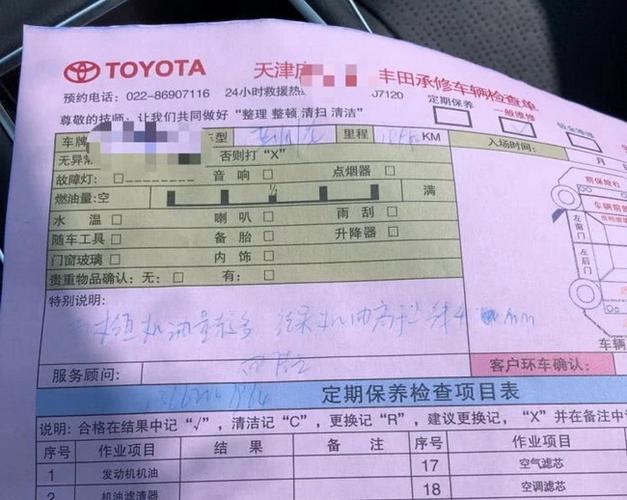 TOYOTA 天津 丰田承修车辆检查单
预约电话：022-86907116 24小时救援热 07120
定期保养 一般维修 钣金喷漆
尊敬的技师，让我们共同做好“整理 整顿 清扫 清洁”
车牌 型 里程 KM
入场时间： 月
无异常 否则打“X”
故障灯：□ 音响□ 点烟器□
燃油量：空 1/2 满
水温□ 喇叭□ 雨刮□
随车工具□ 备胎□ 升降器□
门窗玻璃□ 内饰□
贵重物品确认：无：□ 有：□
前保险杠
车辆前部
左前门
左后门
车辆
特别说明：
机油量 多 结果机油高于 4 mm
服务顾问：
客户环车确认：
定期保养检查项目表
说明：合格在结果中记“√”，清洁记“C”，更换记“R”，建议更换记，“X”并在备注中
序号 作业项目 结果 备注 序号 作业项目
1 发动机机油 17 空气滤芯
2 机油滤清器 18 空调滤芯